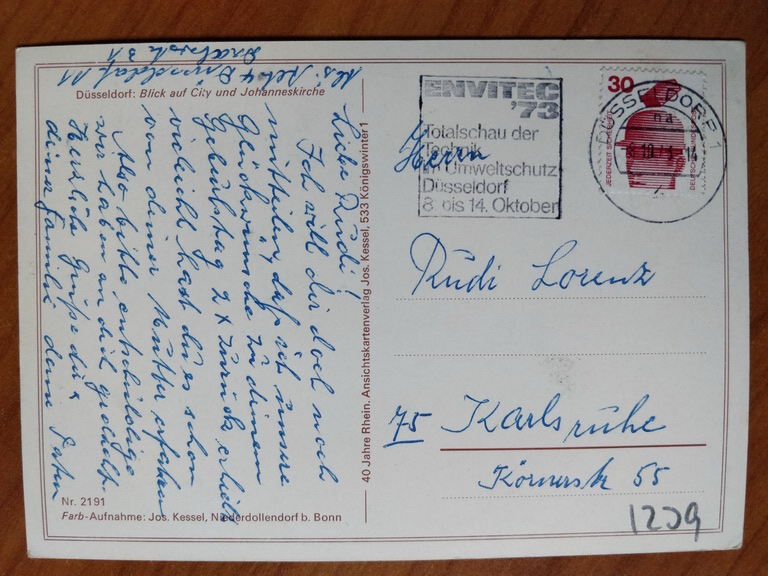 Düsseldorf: Blick auf City und Johanneskirche
Liebe Rudi!
Ich will dir doch noch
mitteilen, daß ich unsere
Glückwünsche zu deinem
Geburtstag 2x zurück erhielt
vieleicht hast du es schon
von deiner Mutter erfahren
Also bitte entschuldige
wir haben an dich gedacht
Herzliche Grüße dir u
deiner Familie deine
Nr. 2191
Farb-Aufnahme: Jos. Kessel, Niederdollendorf b. Bonn
40 Jahre Rhein. Ansichtskartenverlag Jos. Kessel, 533 Königswinter 1
ENVITEC
'73
Totalschau der
Technik
im Umweltschutz
Düsseldorf
8. bis 14. Oktober
30
JEDERZEIT SICHERHEIT
DÜSSELDORF 1
na
Herrn
Rudi Lorenz
75 Karlsruhe
Körnerstr 55
1209